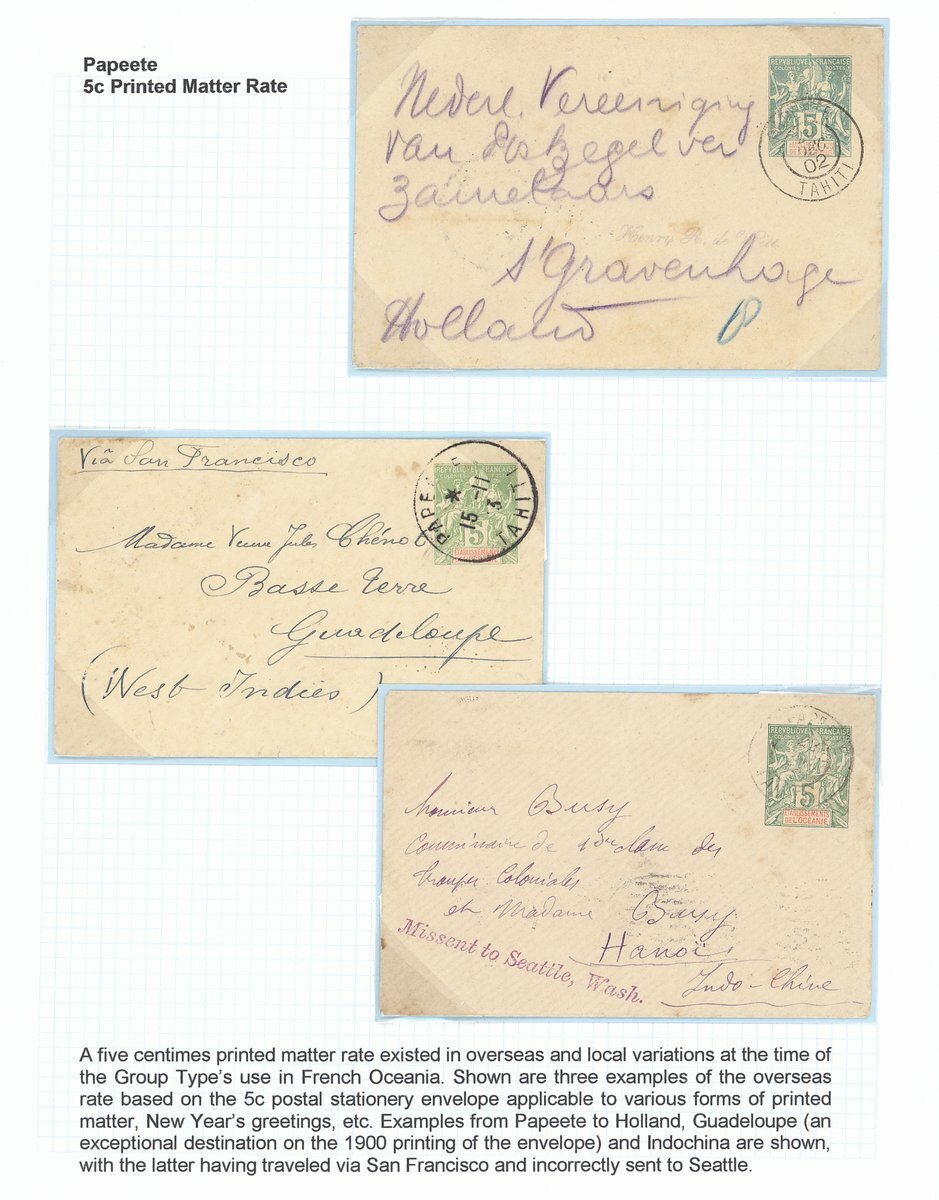 Papeete
5c Printed Matter Rate
REPVBLIQVE FRANÇAISE
COLONIES POSTES
5
DEC
02
TAHITI
Nederl. Vereeniging
van Postzegel ver
zamelaars
Henry R. de
s'Gravenhage
Holland
Viâ San Francisco
REPVBLIQVE FRANÇAISE
PAPEETE
15 -11
3
TAHITI
5
ETABLISSEMENTS
Madame Veuve Jules Chénot
Basse Terre
Guadeloupe
(West Indies)
REPVBLIQVE FRANÇAISE
COLONIES POSTES
5
ETABLISSEMENTS
DE L'OCEANIE
Monsieur Busy
Commissaire de 1ère classe des
troupes Coloniales
et Madame Busy
Hanoï
Indo-Chine
Missent to Seattle, Wash.
A five centimes printed matter rate existed in overseas and local variations at the time of
the Group Type's use in French Oceania. Shown are three examples of the overseas
rate based on the 5c postal stationery envelope applicable to various forms of printed
matter, New Year's greetings, etc. Examples from Papeete to Holland, Guadeloupe (an
exceptional destination on the 1900 printing of the envelope) and Indochina are shown,
with the latter having traveled via San Francisco and incorrectly sent to Seattle.